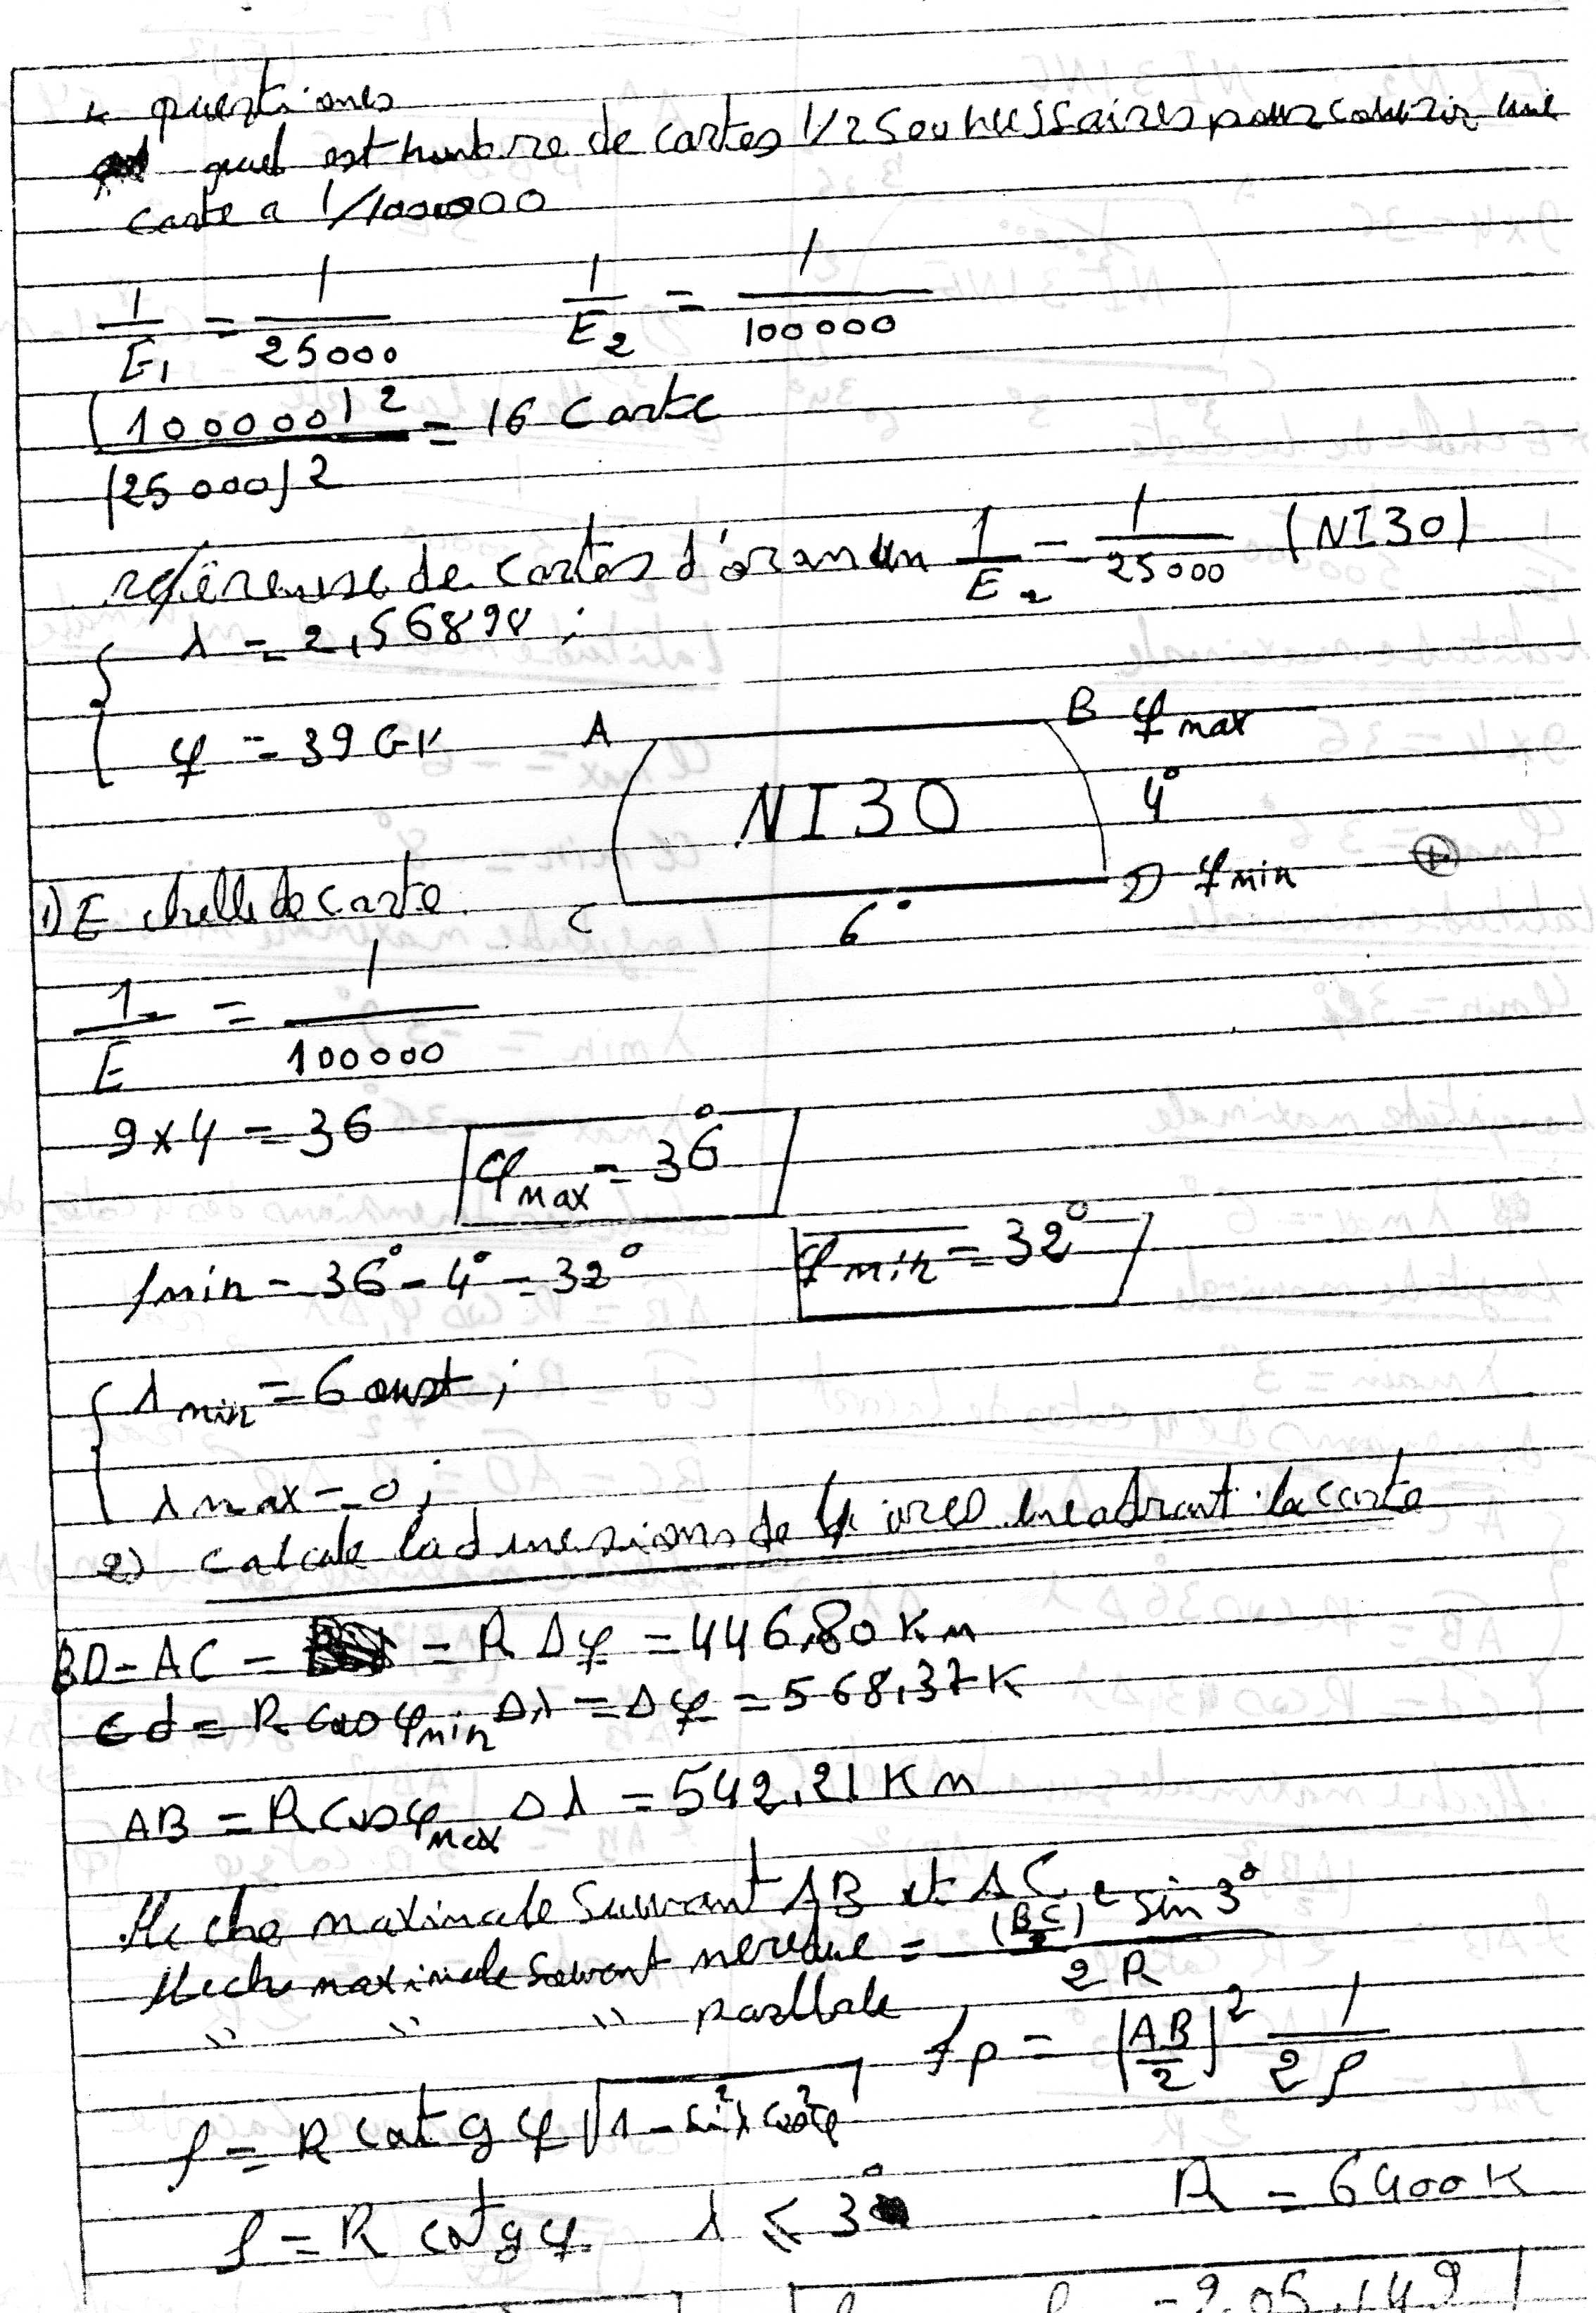 questiones
quel est hombre de cartes 1/25000 nessaires pour couvrir une
carte a 1/100000
1/E1 = 1/25000 1/E2 = 1/100000
(100000)2 / (25000)2 = 16 carte
référense de cartes d'oran un 1/E2 = 1/25000 (NI30)
λ = 2,56898 ;
φ = 39 Gr
A B φ max
NI30 4°
C D φ min
6°
1) Echelle de carte
1/E = 1/100000
9x4 = 36 φ max = 36°
φ min = 36° - 4° = 32° φ min = 32°
λ min = 6 ouest ;
λ max = 0 ;
2) calcule la dimensions de 4 arcs encadrant la carte
BD = AC = R Δφ = 446,80 Km
Cd = R cos φ min Δλ = Δφ = 568,37 K
AB = R cos φ max Δλ = 542,21 Km
fleche maximale suivant AB et AC
fleche maximale suivant meridie = (BC/2)2 sin 3° / 2R
" " " parllele fp = (AB/2)2 1/2ρ
ρ = R cot g φ √1 - sin2λ cos2φ
ρ = R cot g φ λ ≤ 3° R = 6400 K
= 205,149